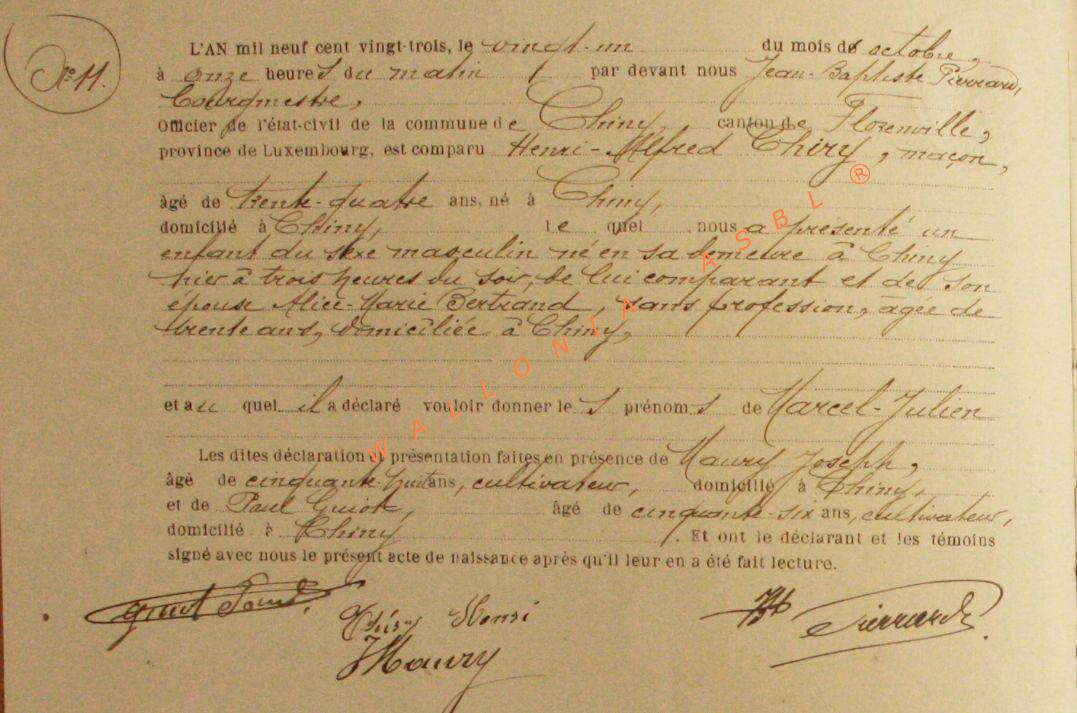 N° 11.
L'AN mil neuf cent vingt-trois, le vingt-un du mois de octobre,
à onze heures du matin par devant nous Jean-Baptiste Pierrard,
bourgmestre,
Officier de l'état-civil de la commune de Chiny, canton de Florenville,
province de Luxembourg, est comparu Henri-Alfred Thiry, maçon,
âgé de trente-quatre ans, né à Chiny,
domicilié à Chiny, le quel nous a présenté un
enfant du sexe masculin né en sa demeure à Chiny
hier à trois heures du soir, de lui comparant et de son
épouse Alice-Marie Bertrand, sans profession, agée de
trente ans, domiciliée à Chiny,
et au quel il a déclaré vouloir donner les prénoms de Marcel-Julien
Les dites déclaration et présentation faites en présence de Maury Joseph,
âgé de cinquante-huit ans, cultivateur, domicilié à Chiny,
et de Paul Guiot, âgé de cinquante-six ans, cultivateur,
domicilié à Chiny. Et ont le déclarant et les témoins
signé avec nous le présent acte de naissance après qu'il leur en a été fait lecture.
Guiot Paul. Thiry Henri JB Pierrard.
J Maury
WALLONIA ASBL ®